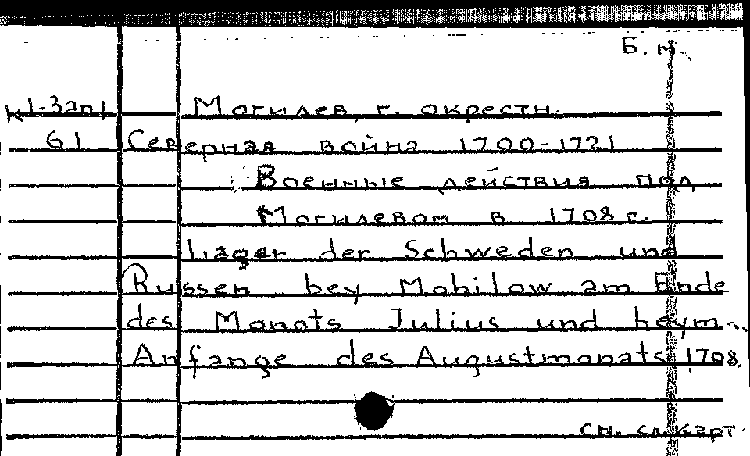 Б. м.
К 1-Зап/ Могилев, г. окрестн.
61 Северная война 1700-1721
Военные действия под
Могилевом в 1708 г.
Lager der Schweden und
Russen bey Mohilow am Ende
des Monats Julius und beym
Anfange des Augustmonats 1708.
См. сл. карт.